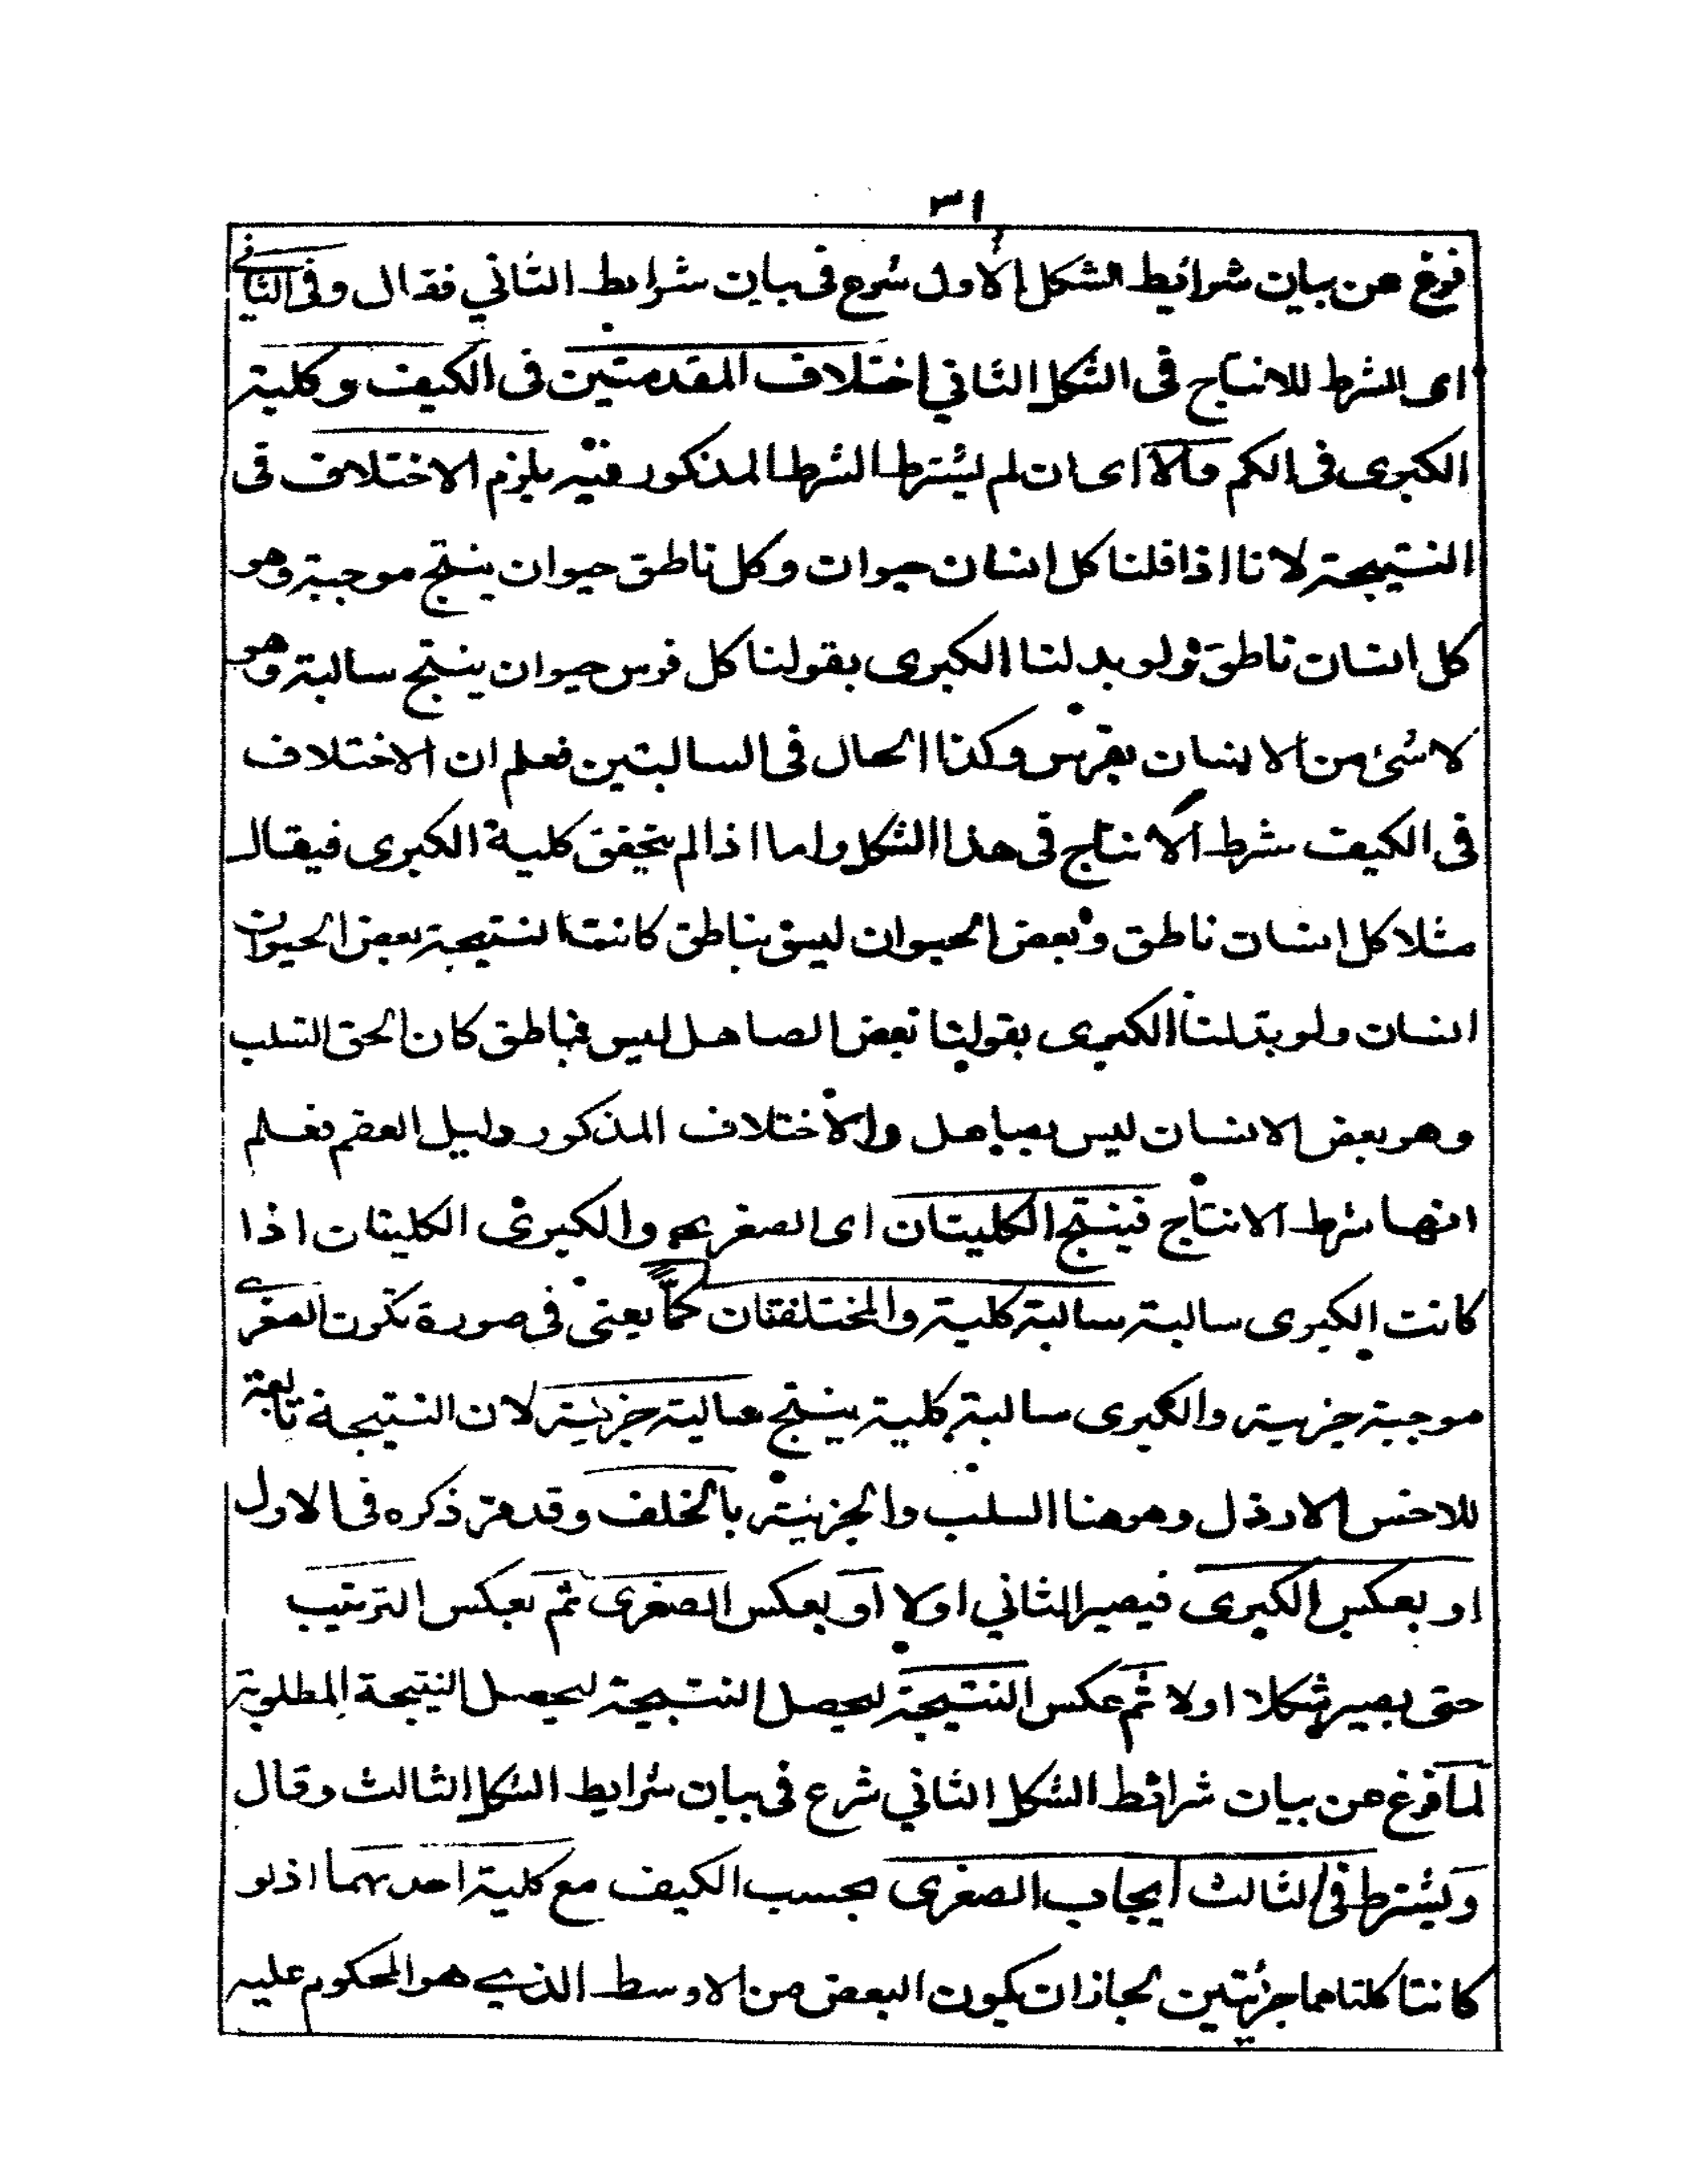 ٣١
فرغ عن بيان شرائيط الشكل الاول شرع فى بيان شرايط الثاني فقال وفى الثاني
اى الشرط للانتاج فى الشكل الثاني اختلاف المقدمتين فى الكيف وكلية
الكبرى فى الكم والا اى ان لم يشترط الشرط المذكور فيه يلزم الاختلاف فى
النتيجة لانا اذا قلنا كل انسان حيوان وكل ناطق حيوان ينتج موجبة وهو
كل انسان ناطق ولو بدلنا الكبرى بقولنا كل فرس حيوان ينتج سالبة وهو
لا شئ من الانسان بفرس وكذا الحال فى السالبتين فعلم ان الاختلاف
فى الكيف شرط الانتاج فى هذا الشكل واما اذا لم يتحقق كلية الكبرى فيقال
مثلا كل انسان ناطق وبعض الحيوان ليس بناطق كانت النتيجة بعض الحيوان
انسان ولو بدلنا الكبرى بقولنا بعض الصاهل ليس بناطق كان الحق السلب
وهو بعض الانسان ليس بصاهل والاختلاف المذكور دليل العقم فعلم
انها شرط الانتاج فينتج الكليتان اى الصغرى والكبرى الكليتان اذا
كانت الكبرى سالبة سالبة كلية والمختلفتان كمّا يعنى فى صورة تكون الصغرى
موجبة جزئية والكبرى سالبة كلية ينتج سالبة جزئية لان النتيجة تابعة
للاخس الارذل وهو هنا السلب والجزئية بالخلف وقد مرّ ذكره فى الاول
او بعكس الكبرى فيصير الثاني اولا او بعكس الصغرى ثم بعكس الترتيب
حتى يصير شكلا اولا ثم عكس النتيجة ليحصل النتيجة ليحصل النتيجة المطلوبة
لما فرغ عن بيان شرائط الشكل الثاني شرع فى بيان شرايط الشكل الثالث وقال
ويشترط فى الثالث ايجاب الصغرى بحسب الكيف مع كلية احدىهما اذ لو
كانتا كلتاهما جزئيتين لجاز ان يكون البعض من الاوسط الذي هو المحكوم عليه